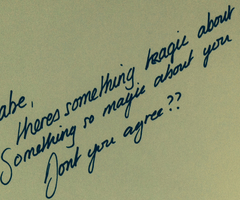 abe,
theres something tragic about
Something so magic about you
Dont you agree??